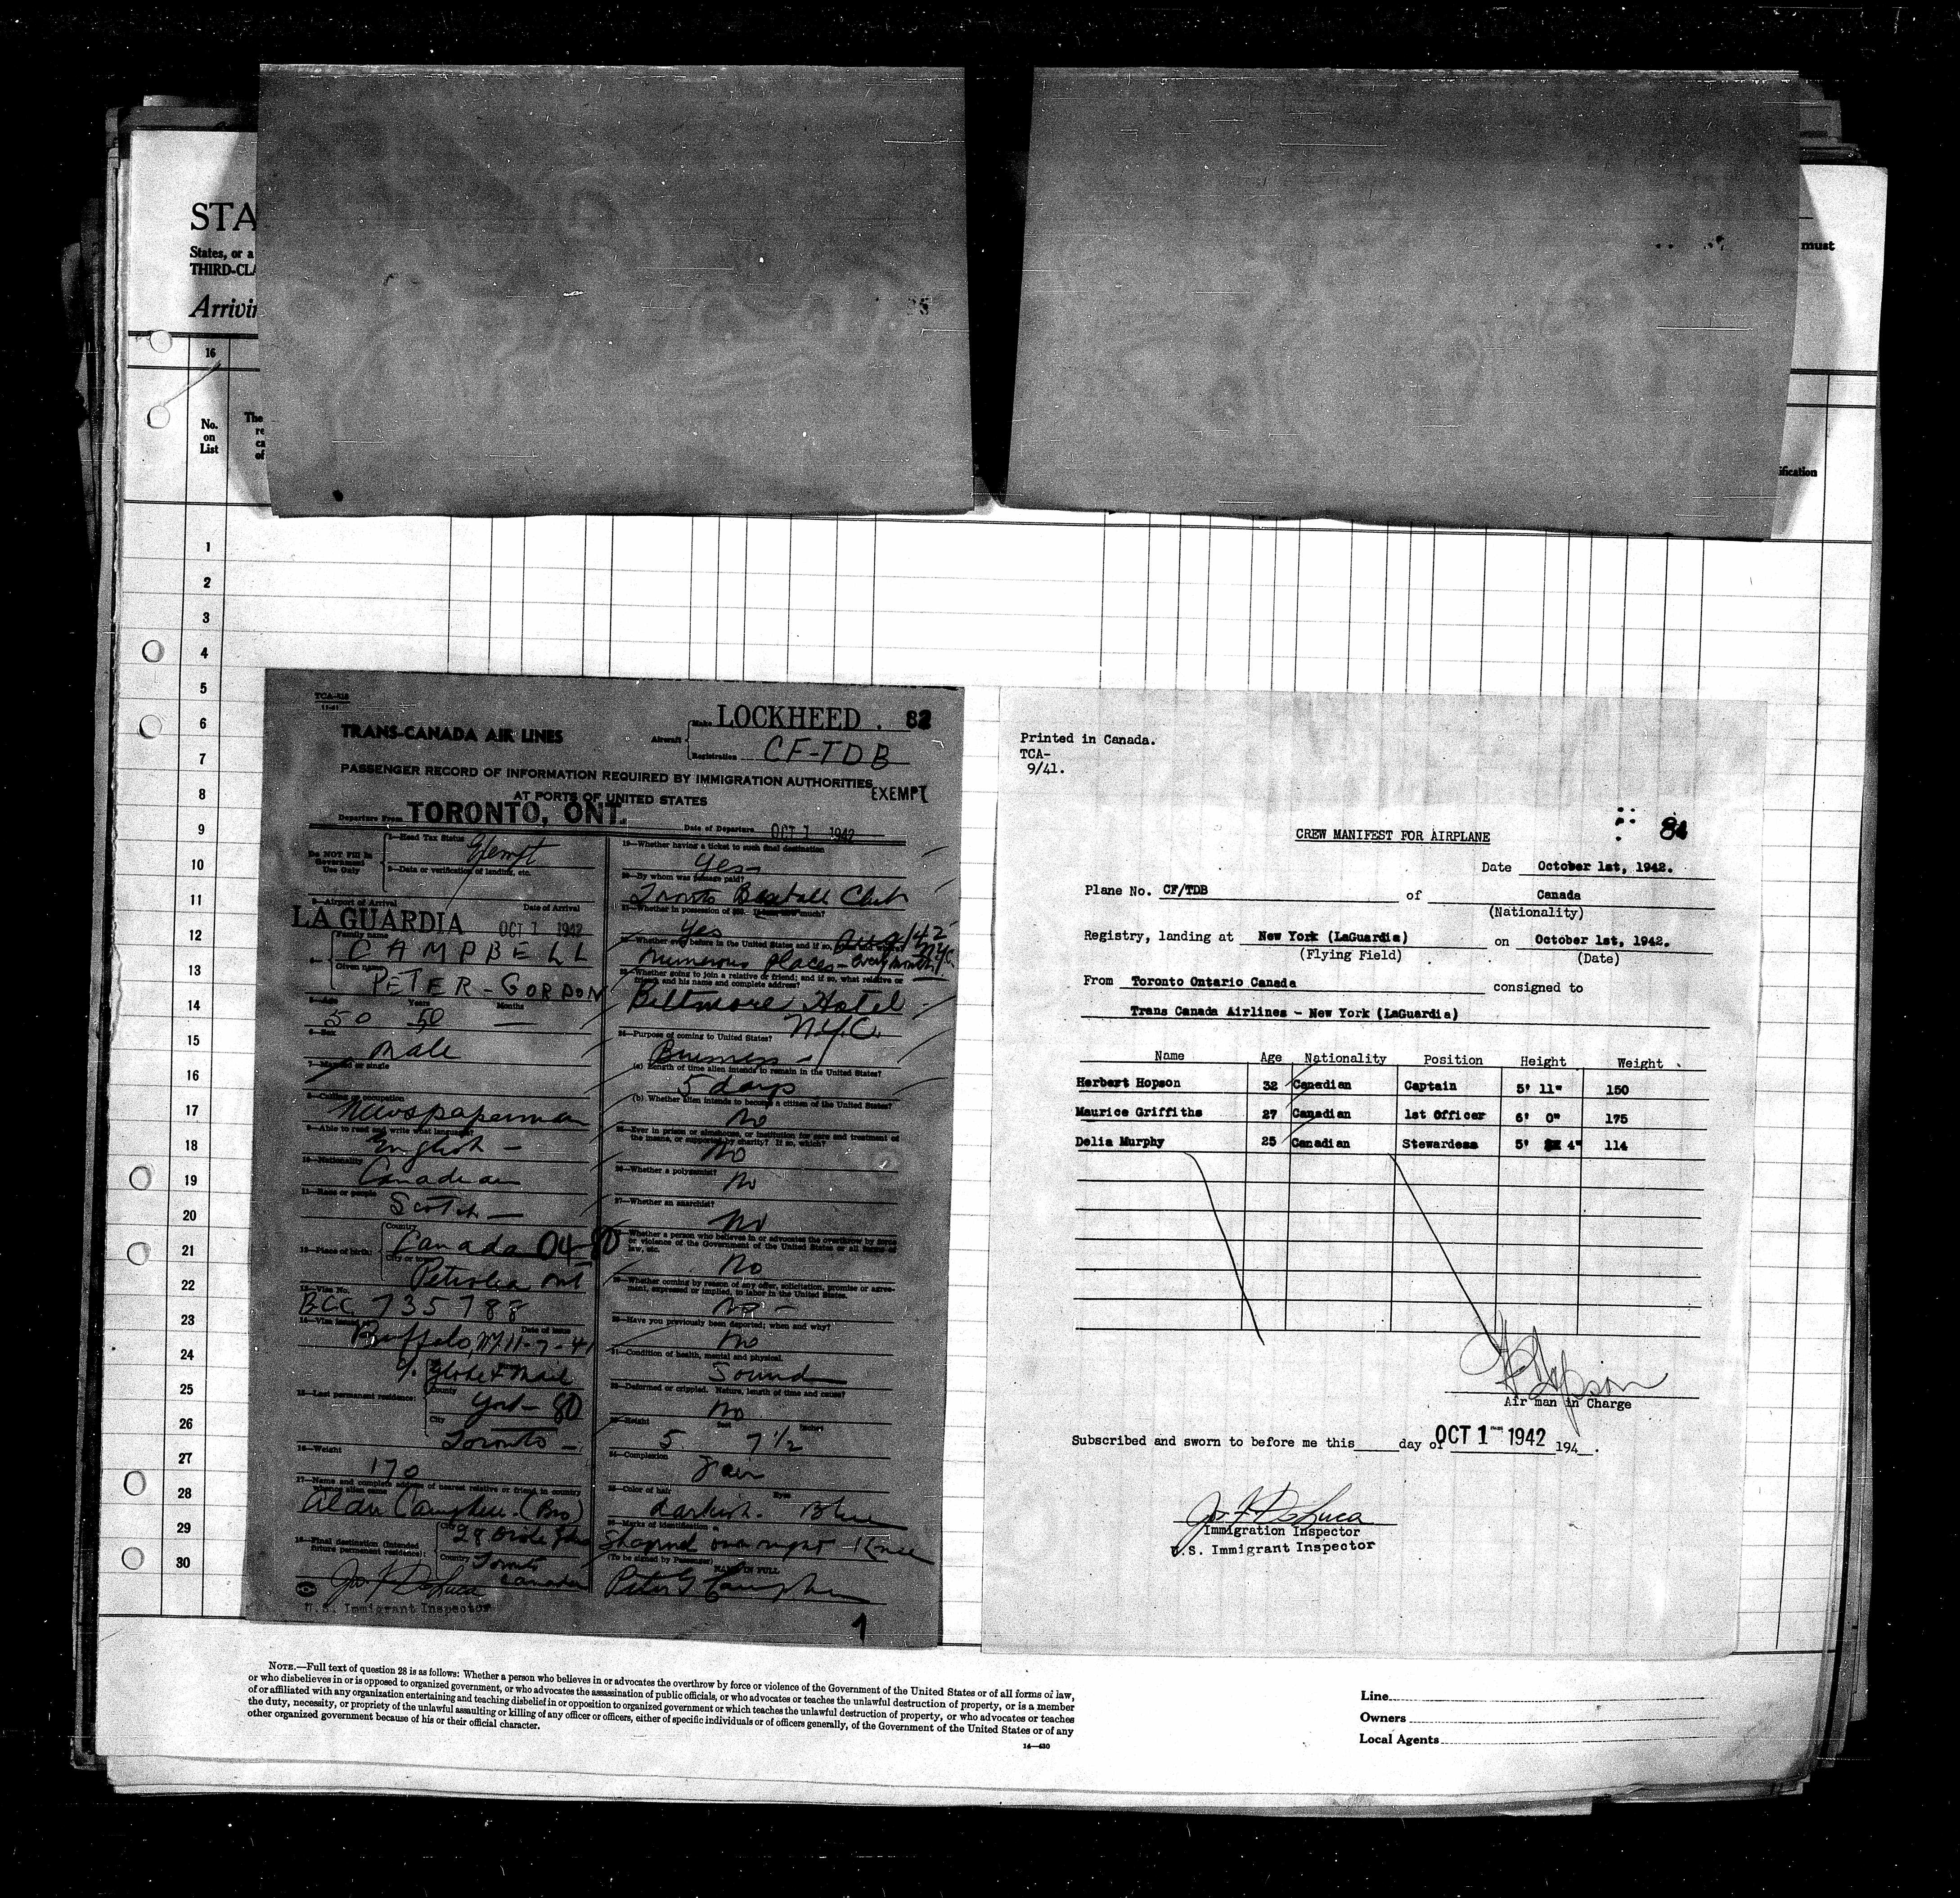 STA
States, or a
THIRD-CLA
Arrivin
must
16
No.
on
List
The
re
ca
of
ification
1
2
3
4
5
6
7
8
9
10
11
12
13
14
15
16
17
18
19
20
21
22
23
24
25
26
27
28
29
30
TCA-
11-41
TRANS-CANADA AIR LINES
Aircraft
Make LOCKHEED . 82
Registration CF-TDB
PASSENGER RECORD OF INFORMATION REQUIRED BY IMMIGRATION AUTHORITIES
AT PORTS OF UNITED STATES
EXEMPT
Departure From TORONTO, ONT.
Date of Departure OCT 1 1942
Do NOT Fill in
Government
Use Only
1—Head Tax Status
Exempt
2—Data or verification of landing, etc.
3—Airport of Arrival
Date of Arrival
LA GUARDIA OCT 1 1942
4—
Family name
CAMPBELL
Given name
PETER-GORDON
5—Age Years Months
50 50 —
6—Sex
Male
7—Married or single
8—Calling or occupation
Newspaperman
9—Able to read and write what language
English —
10—Nationality
Canadian
11—Race or people
Scotch —
12—Place of birth:
Country
Canada 04-80
City or town
Petrolia Ont
13—Visa No.
BCC 735788
14—Visa issued Date of issue
Buffalo, NY 11-7-41
15—Last permanent residence:
% Globe & Mail
County
York — 80
City
Toronto —
16—Weight
170
17—Name and complete address of nearest relative or friend in country
whence alien came
Alan Campbell (Bro)
18—Final destination (intended
future permanent residence):
City
Country
Toronto
Canada
Jos F DeLuca
U.S. Immigrant Inspector
19—Whether having a ticket to such final destination
Yes
20—By whom was passage paid?
Toronto Baseball Club
21—Whether in possession of $50. If less how much?
Yes
22—Whether ever before in the United States and if so,
Numerous places — every month
23—Whether going to join a relative or friend; and if so, what relative or
friend and his name and complete address?
Biltmore Hotel
N.Y.C.
24—Purpose of coming to United States?
Business —
(a) Length of time alien intends to remain in the United States?
5 days
(b) Whether alien intends to become a citizen of the United States?
No
25—Ever in prison or almshouse, or institution for care and treatment of
the insane, or supported by charity? If so, which?
No
26—Whether a polygamist?
No
27—Whether an anarchist?
No
28—Whether a person who believes in or advocates the overthrow by force
or violence of the Government of the United States or all forms of
law, etc.
No
29—Whether coming by reason of any offer, solicitation, promise or agree-
ment, expressed or implied, to labor in the United States.
No —
30—Have you previously been deported; when and why?
No
31—Condition of health, mental and physical.
Sound
32—Deformed or crippled. Nature, length of time and cause?
No
33—Height feet inches
5 7 1/2
34—Complexion
Fair
35—Color of hair Eyes
darkish. Blue
36—Marks of identification
(To be signed by Passenger) NAME IN FULL
Peter G Campbell
1
Printed in Canada.
TCA-
9/41.
84
CREW MANIFEST FOR AIRPLANE
Date October 1st, 1942.
Plane No. CF/TDB of Canada
(Nationality)
Registry, landing at New York (LaGuardia) on October 1st, 1942.
(Flying Field) (Date)
From Toronto Ontario Canada consigned to
Trans Canada Airlines - New York (LaGuardia)
Name Age Nationality Position Height Weight
Herbert Hopson 32 Canadian Captain 5' 11" 150
Maurice Griffiths 27 Canadian 1st Officer 6' 0" 175
Delia Murphy 25 Canadian Stewardess 5' 4" 114
H Hopson
Air man in Charge
Subscribed and sworn to before me this day of OCT 1 1942 194 .
Jos F DeLuca
Immigration Inspector
U.S. Immigrant Inspector
NOTE.—Full text of question 28 is as follows: Whether a person who believes in or advocates the overthrow by force or violence of the Government of the United States or of all forms of law,
or who disbelieves in or is opposed to organized government, or who advocates the assassination of public officials, or who advocates or teaches the unlawful destruction of property, or is a member
of or affiliated with any organization entertaining and teaching disbelief in or opposition to organized government or which teaches the unlawful destruction of property, or who advocates or teaches
the duty, necessity, or propriety of the unlawful assaulting or killing of any officer or officers, either of specific individuals or of officers generally, of the Government of the United States or of any
other organized government because of his or their official character.
16—630
Line
Owners
Local Agents